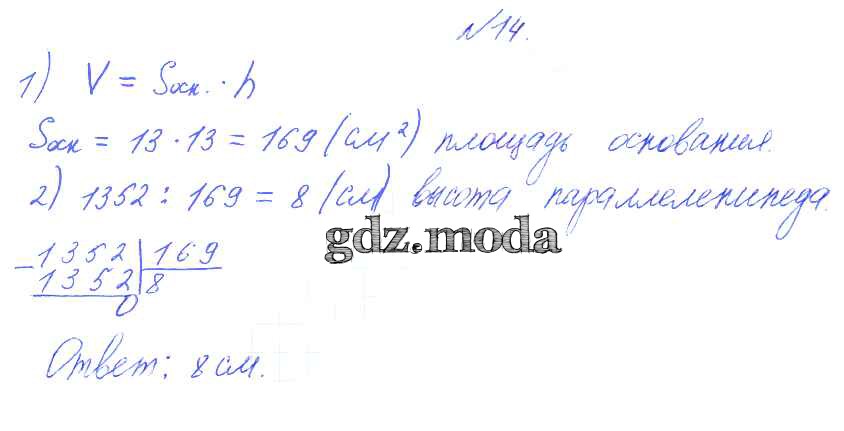 №14.
1) V = Sосн. · h
Sосн = 13 · 13 = 169 (см²) площадь основания.
2) 1352 : 169 = 8 (см) высота параллелепипеда.
gdz.moda
– 1352 | 169
1352 | 8
0
Ответ: 8 см.